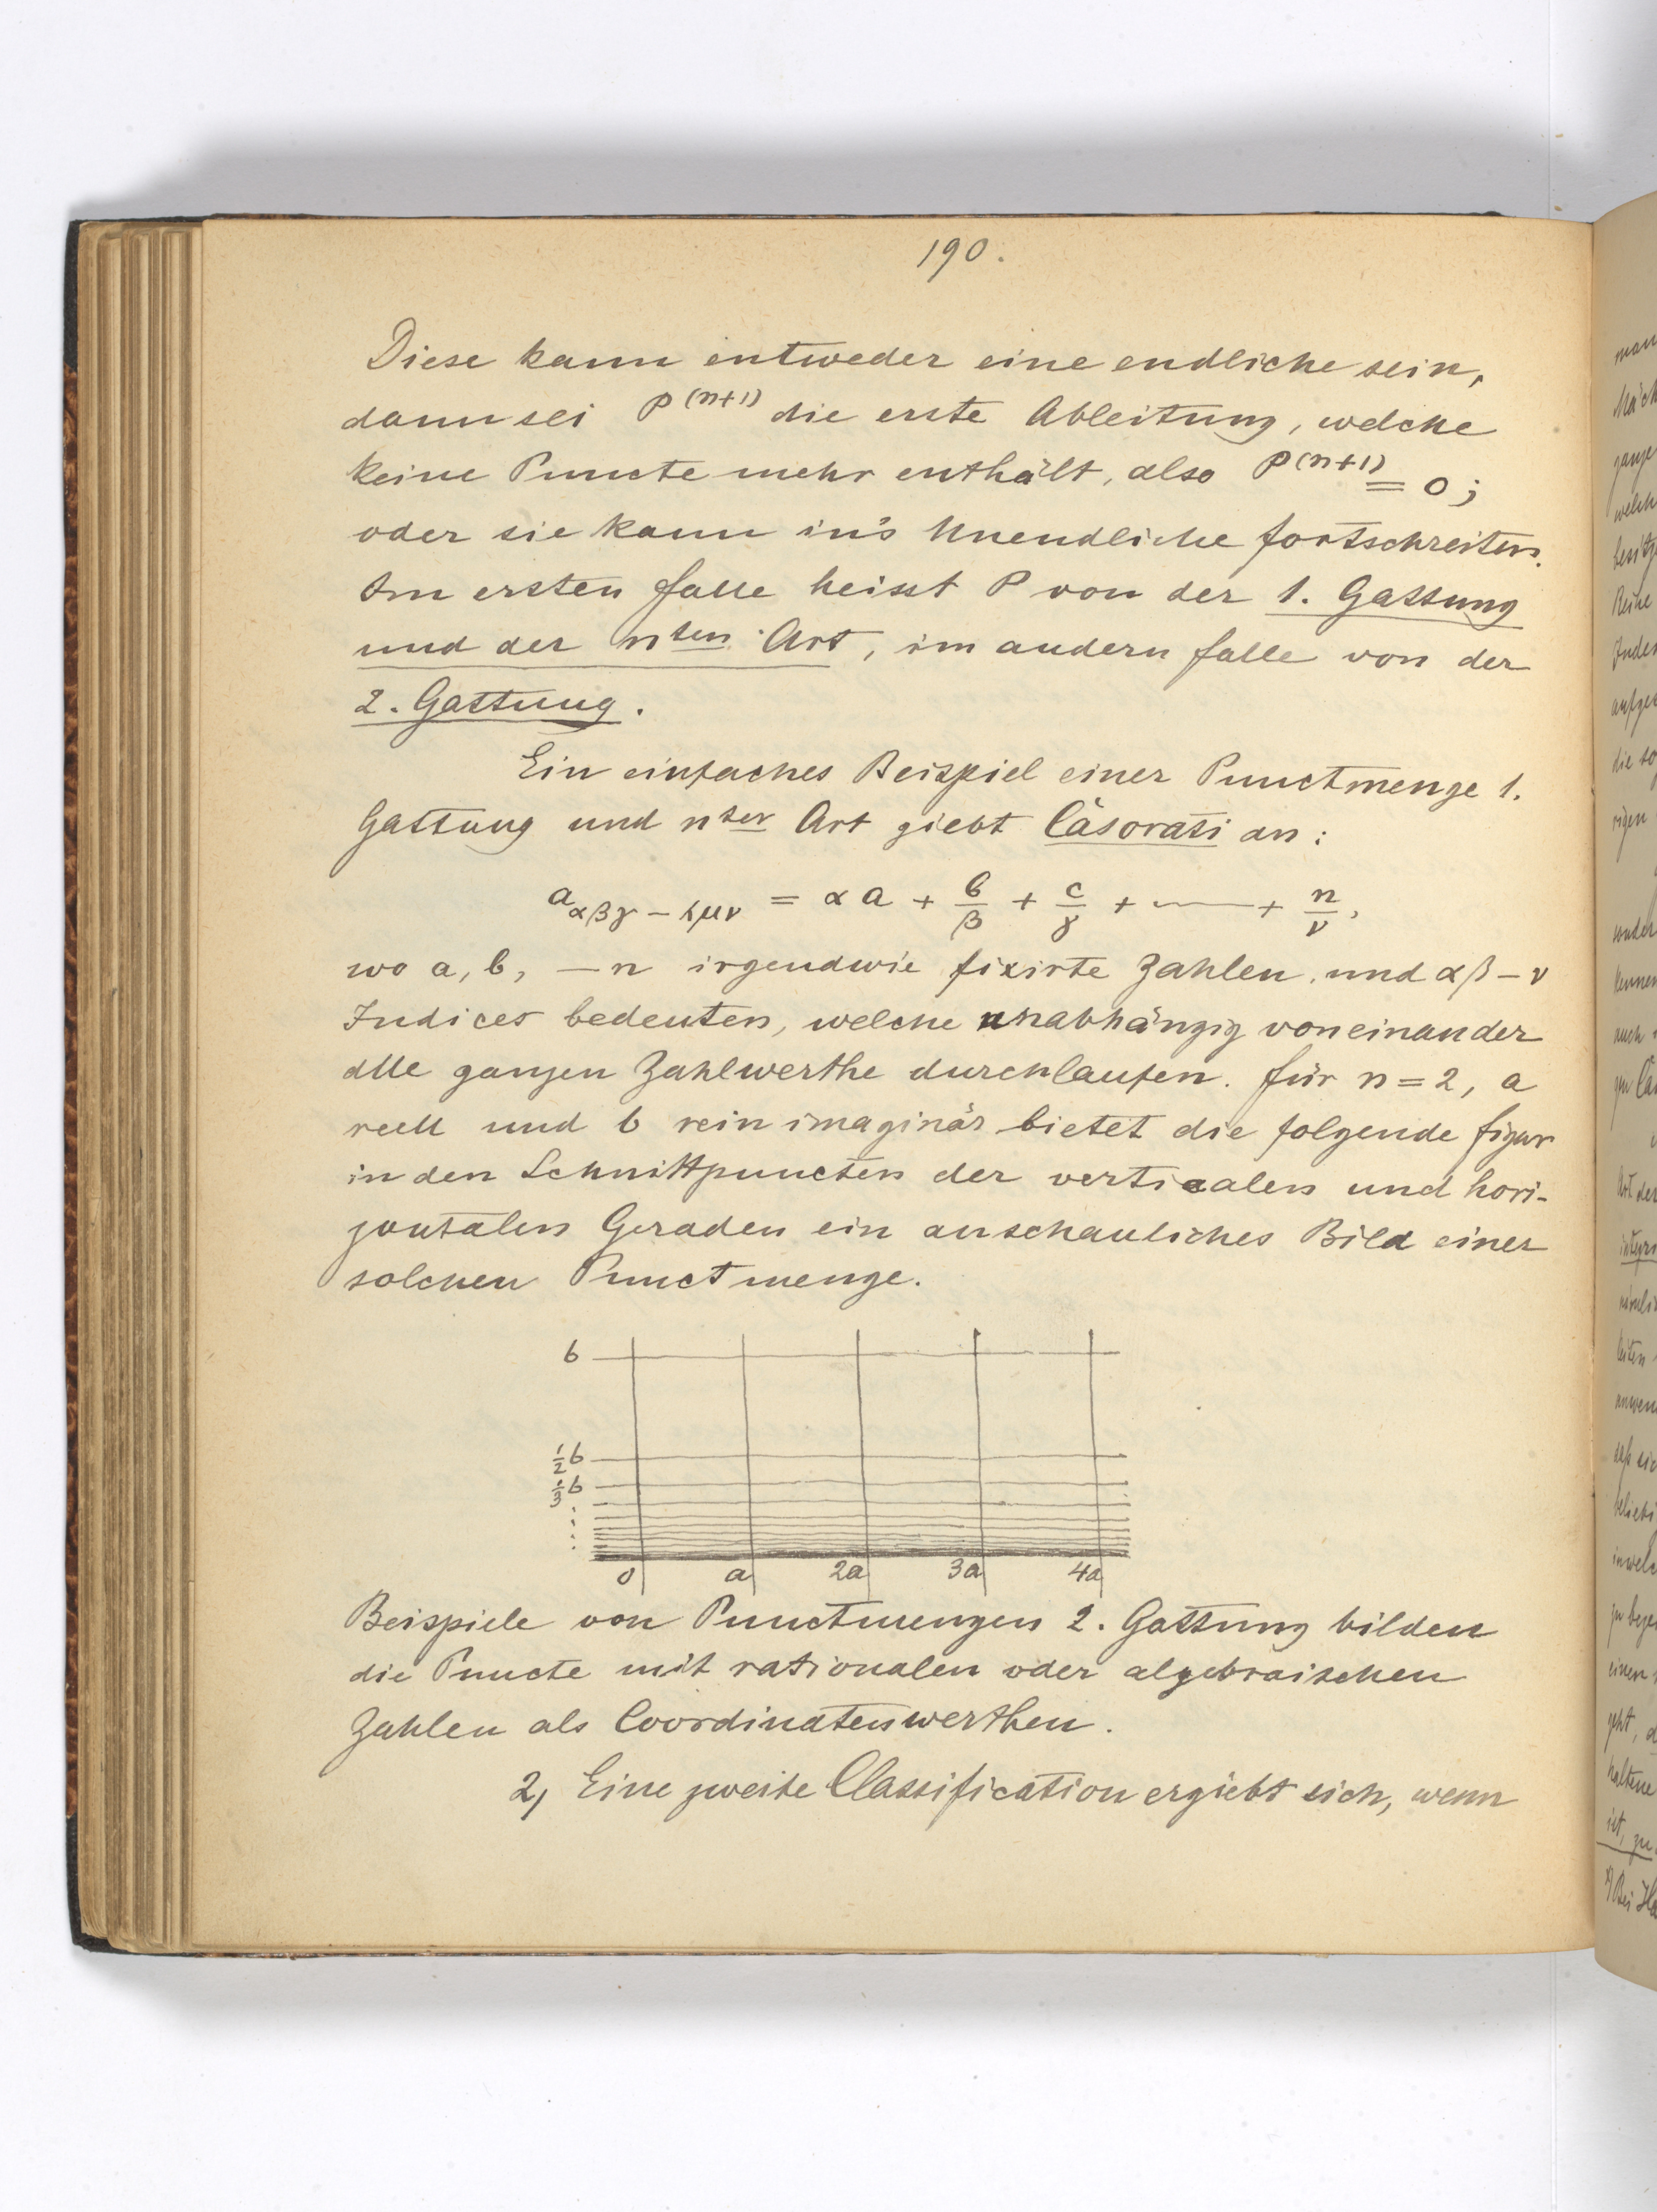 190.
Diese kann entweder eine endliche sein,
dann sei P^(n+1) die erste Ableitung, welche
keine Puncte mehr enthält, also P^(n+1) = 0;
oder sie kann in's Unendliche fortschreiten.
Im ersten Falle heisst P von der 1. Gattung
und der n^ten Art, im andern Falle von der
2. Gattung.
Ein einfaches Beispiel einer Punctmenge 1.
Gattung und n^ter Art giebt Casorati an:
a_αβγ–λμν = αa + b/β + c/γ + —— + n/ν,
wo a, b, — n irgendwie fixirte Zahlen, und αβ – ν
Indices bedeuten, welche unabhängig voneinander
alle ganzen Zahlwerthe durchlaufen. Für n = 2, a
reell und b rein imaginär bietet die folgende Figur
in den Schnittpuncten der verticalen und hori-
zontalen Geraden ein anschauliches Bild einer
solchen Punctmenge.
b
1/2 b
1/3 b
0 a 2a 3a 4a
Beispiele von Punctmengen 2. Gattung bilden
die Puncte mit rationalen oder algebraischen
Zahlen als Coordinatenwerthen.
2, Eine zweite Classification ergiebt sich, wenn